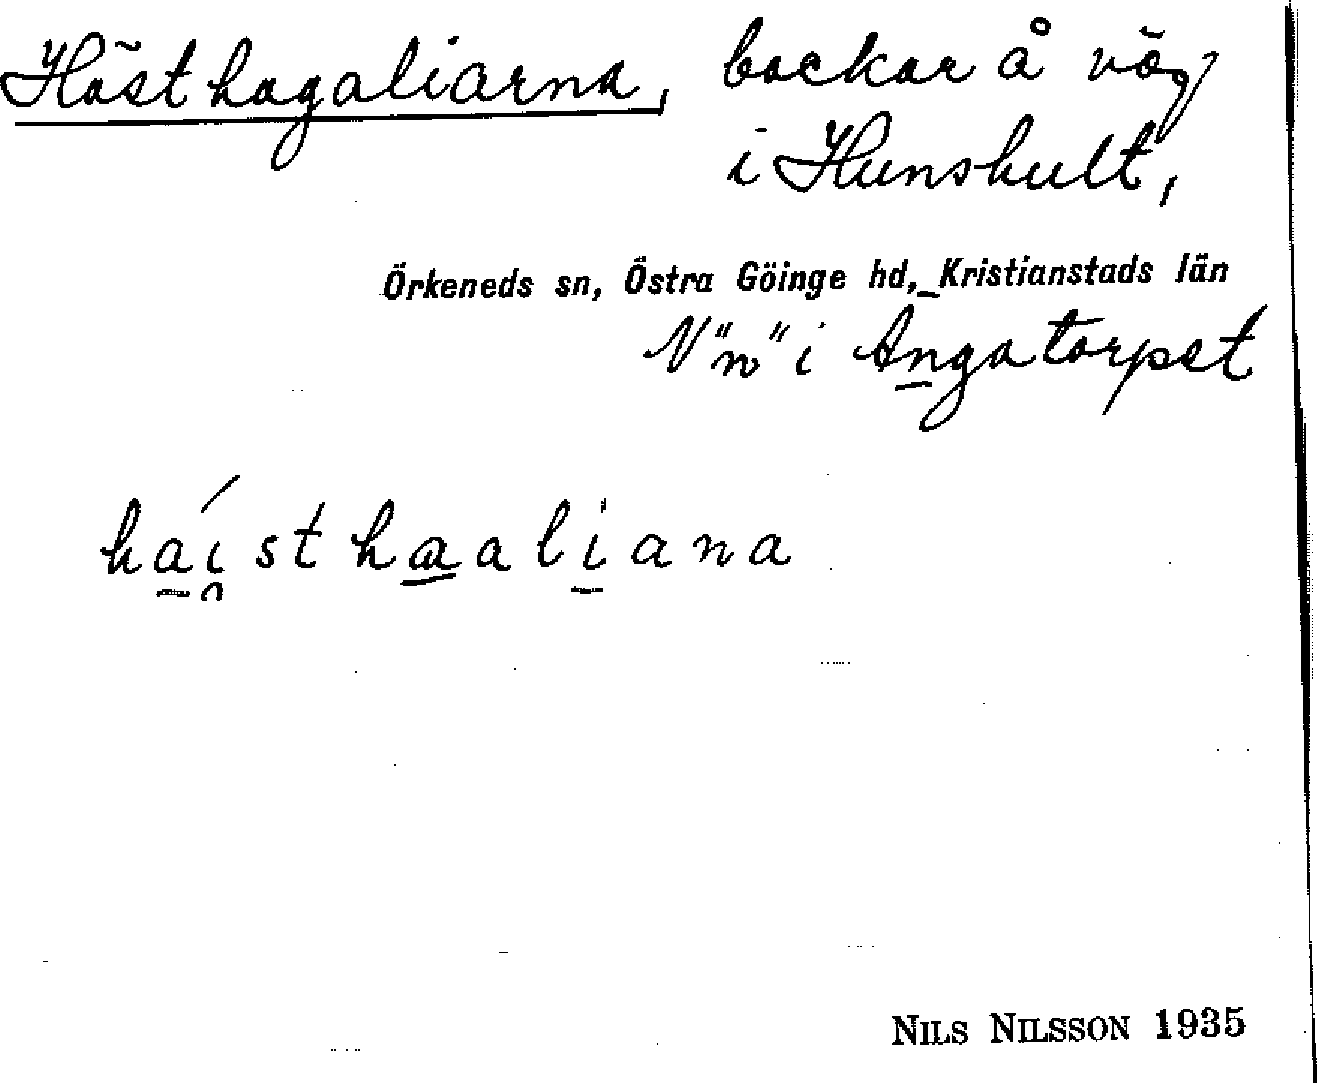 Hästhagaliarna, backar å väg
i Hunshult,
Örkeneds sn, Östra Göinge hd, Kristianstads län
N"n" i Angatorpet
haist haaliana
NILS NILSSON 1935